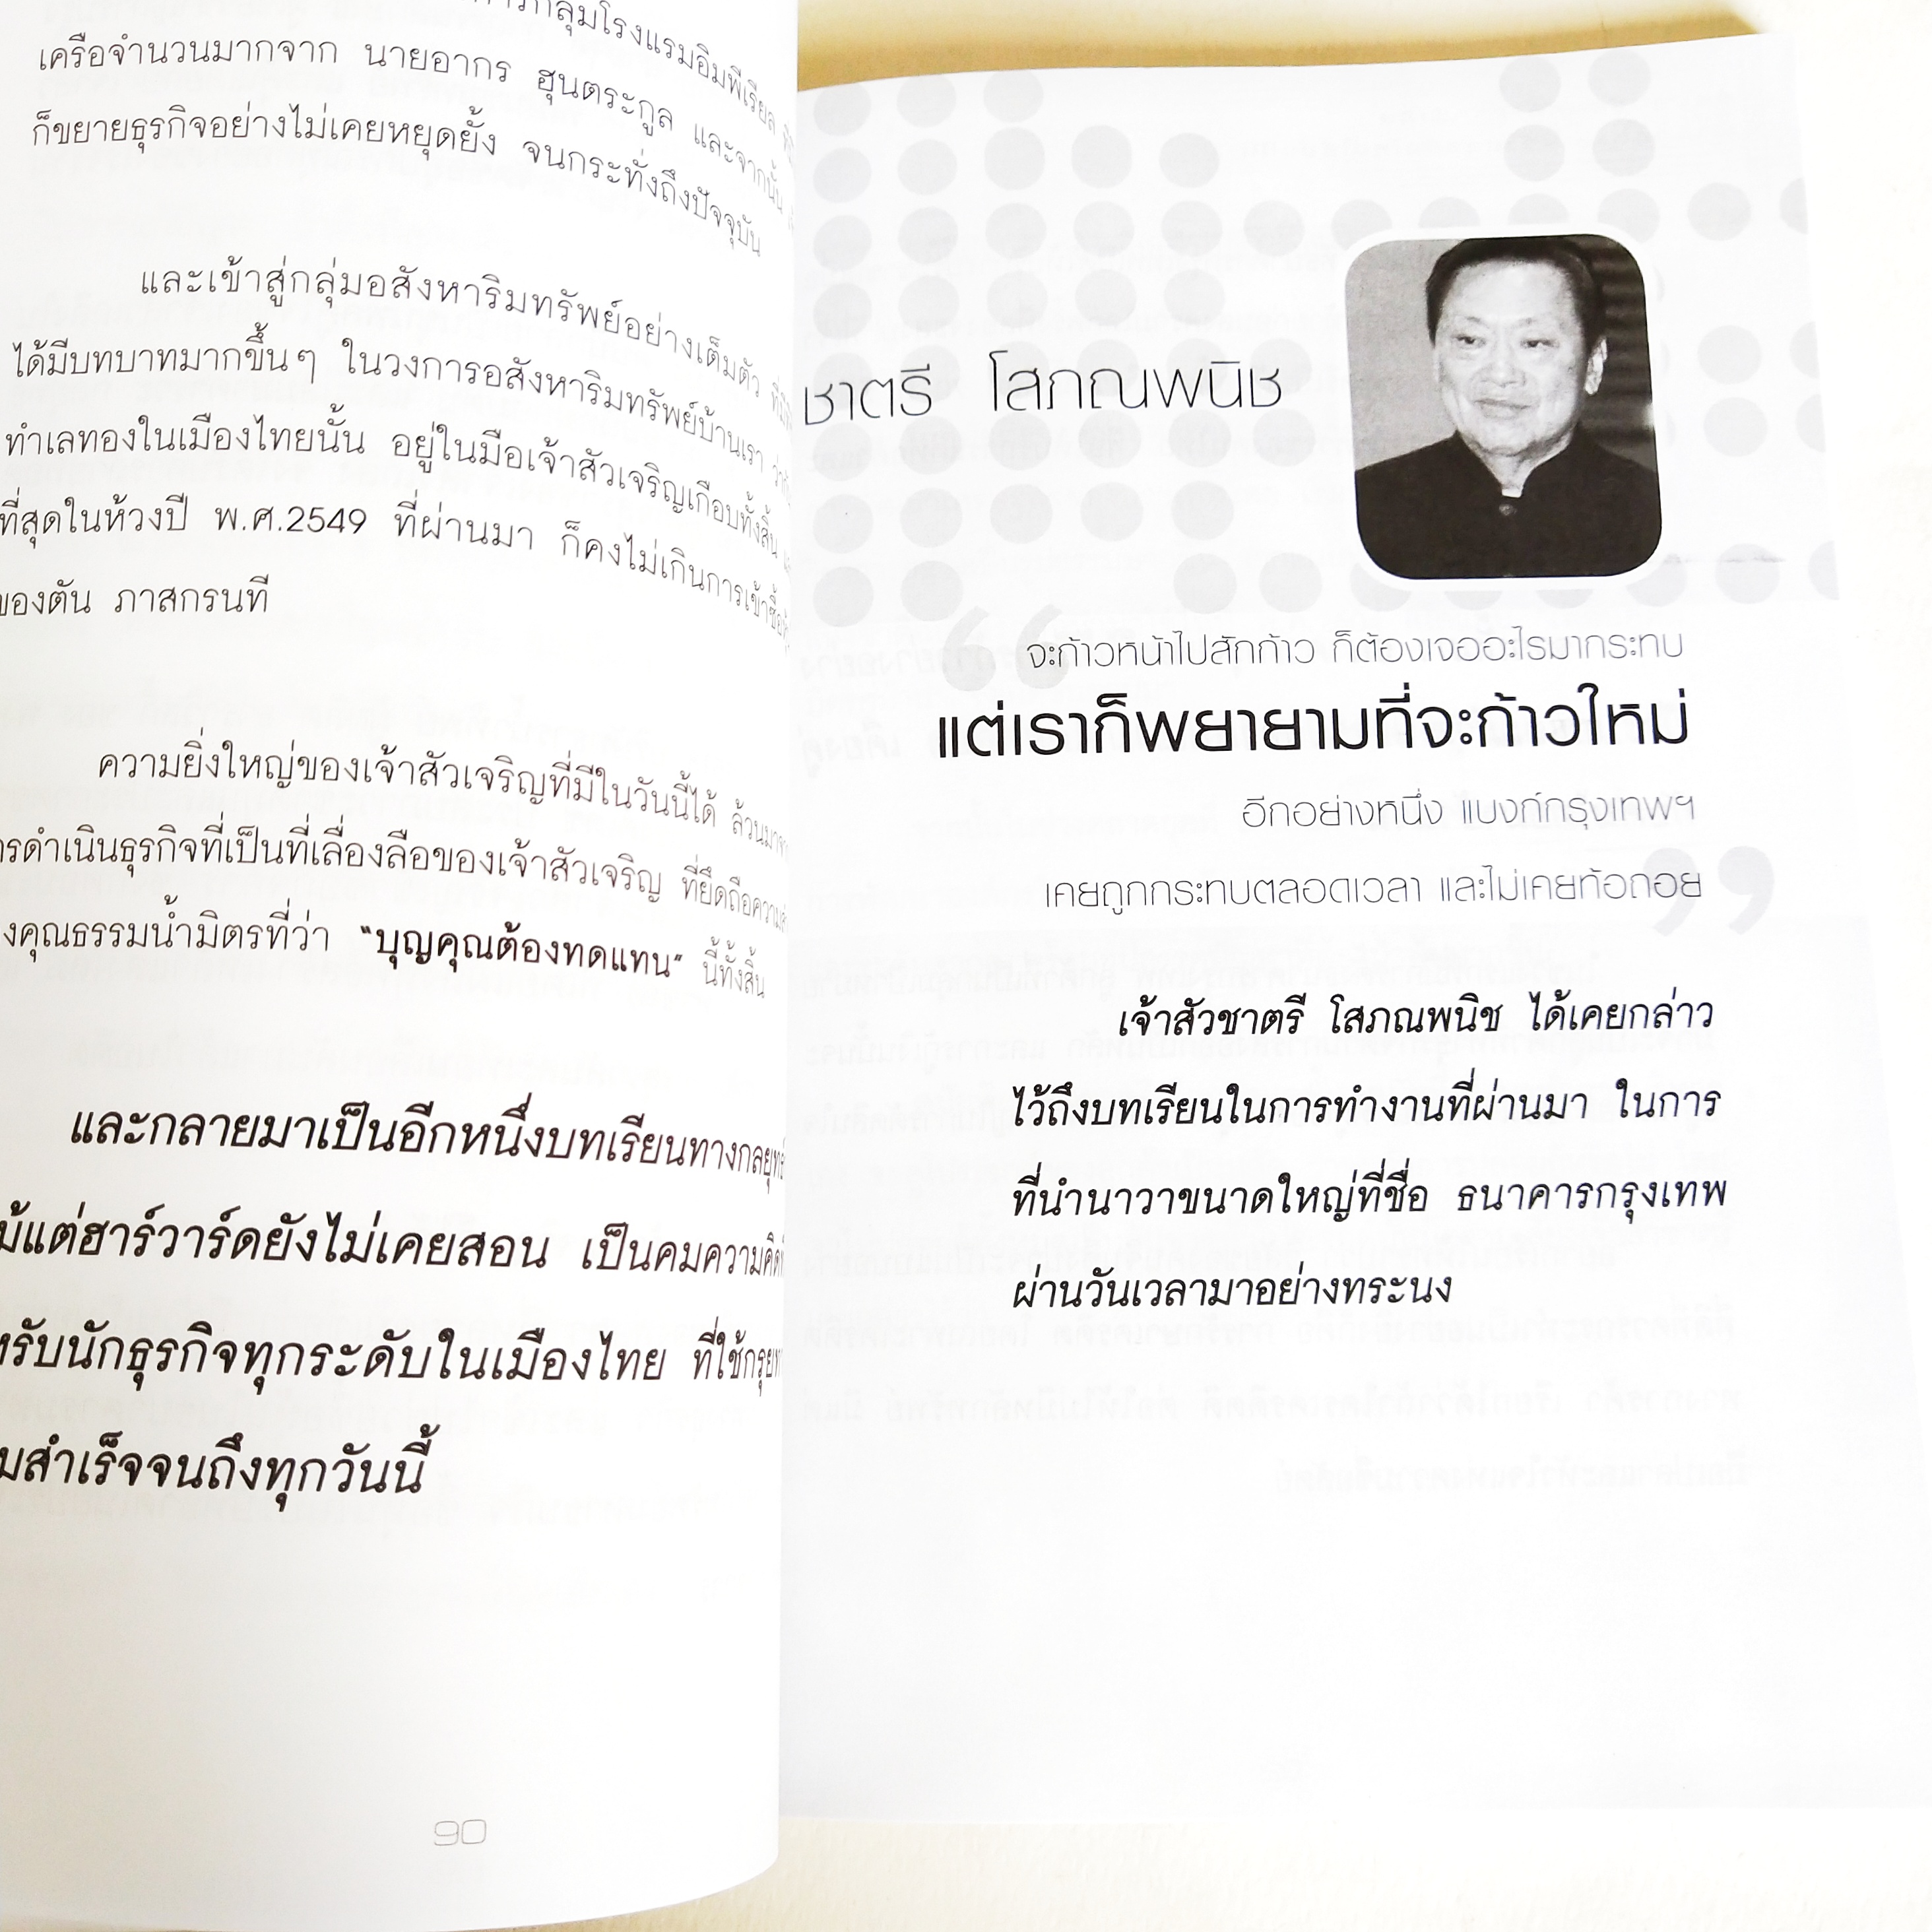 กลุ่มโรงแรมอิมพีเรียล
เครือจำนวนมากจาก นายอากร ฮุนตระกูล และจากนั้น
ก็ขยายธุรกิจอย่างไม่เคยหยุดยั้ง จนกระทั่งถึงปัจจุบัน
และเข้าสู่กลุ่มอสังหาริมทรัพย์อย่างเต็มตัว
ได้มีบทบาทมากขึ้นๆ ในวงการอสังหาริมทรัพย์บ้านเรา
ทำเลทองในเมืองไทยนั้น อยู่ในมือเจ้าสัวเจริญเกือบทั้งสิ้น
ที่สุดในห้วงปี พ.ศ.2549 ที่ผ่านมา ก็คงไม่เกินการเข้าซื้อ
ของตัน ภาสกรนที
ความยิ่งใหญ่ของเจ้าสัวเจริญที่มีในวันนี้ได้ ล้วนมา
ดำเนินธุรกิจที่เป็นที่เลื่องลือของเจ้าสัวเจริญ ที่ยึดถือความ
คุณธรรมน้ำมิตรที่ว่า "บุญคุณต้องทดแทน" นี้ทั้งสิ้น
และกลายมาเป็นอีกหนึ่งบทเรียนทาง
แต่ฮาร์วาร์ดยังไม่เคยสอน เป็นคมความคิด
รับนักธุรกิจทุกระดับในเมืองไทย ที่ใช้
สำเร็จจนถึงทุกวันนี้
90
ชาตรี โสภณพนิช
“จะก้าวหน้าไปสักก้าว ก็ต้องเจออะไรมากระทบ
แต่เราก็พยายามที่จะก้าวใหม่
อีกอย่างหนึ่ง แบงก์กรุงเทพฯ
เคยถูกกระทบตลอดเวลา และไม่เคยท้อถอย”
เจ้าสัวชาตรี โสภณพนิช ได้เคยกล่าว
ไว้ถึงบทเรียนในการทำงานที่ผ่านมา ในการ
ที่นำนาวาขนาดใหญ่ที่ชื่อ ธนาคารกรุงเทพ
ผ่านวันเวลามาอย่างทระนง